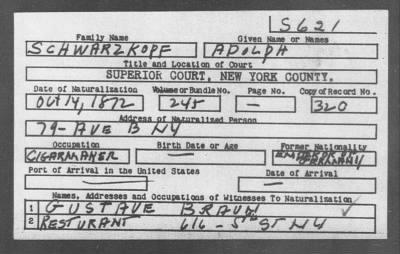 S621
Family Name Given Name or Names
SCHWARZKOPF ADOLPH
Title and Location of Court
SUPERIOR COURT, NEW YORK COUNTY.
Date of Naturalization Volume or Bundle No. Page No. Copy of Record No.
Oct 14, 1872 245 — 320
Address of Naturalized Person
79- AVE B NY
Occupation Birth Date or Age Former Nationality
CIGARMAKER — EMPEROR OF GERMANY
Port of Arrival in the United States Date of Arrival
— —
Names, Addresses and Occupations of Witnesses To Naturalization
1 GUSTAVE BRAUN
2 RESTURANT 616 - 5TH ST NY